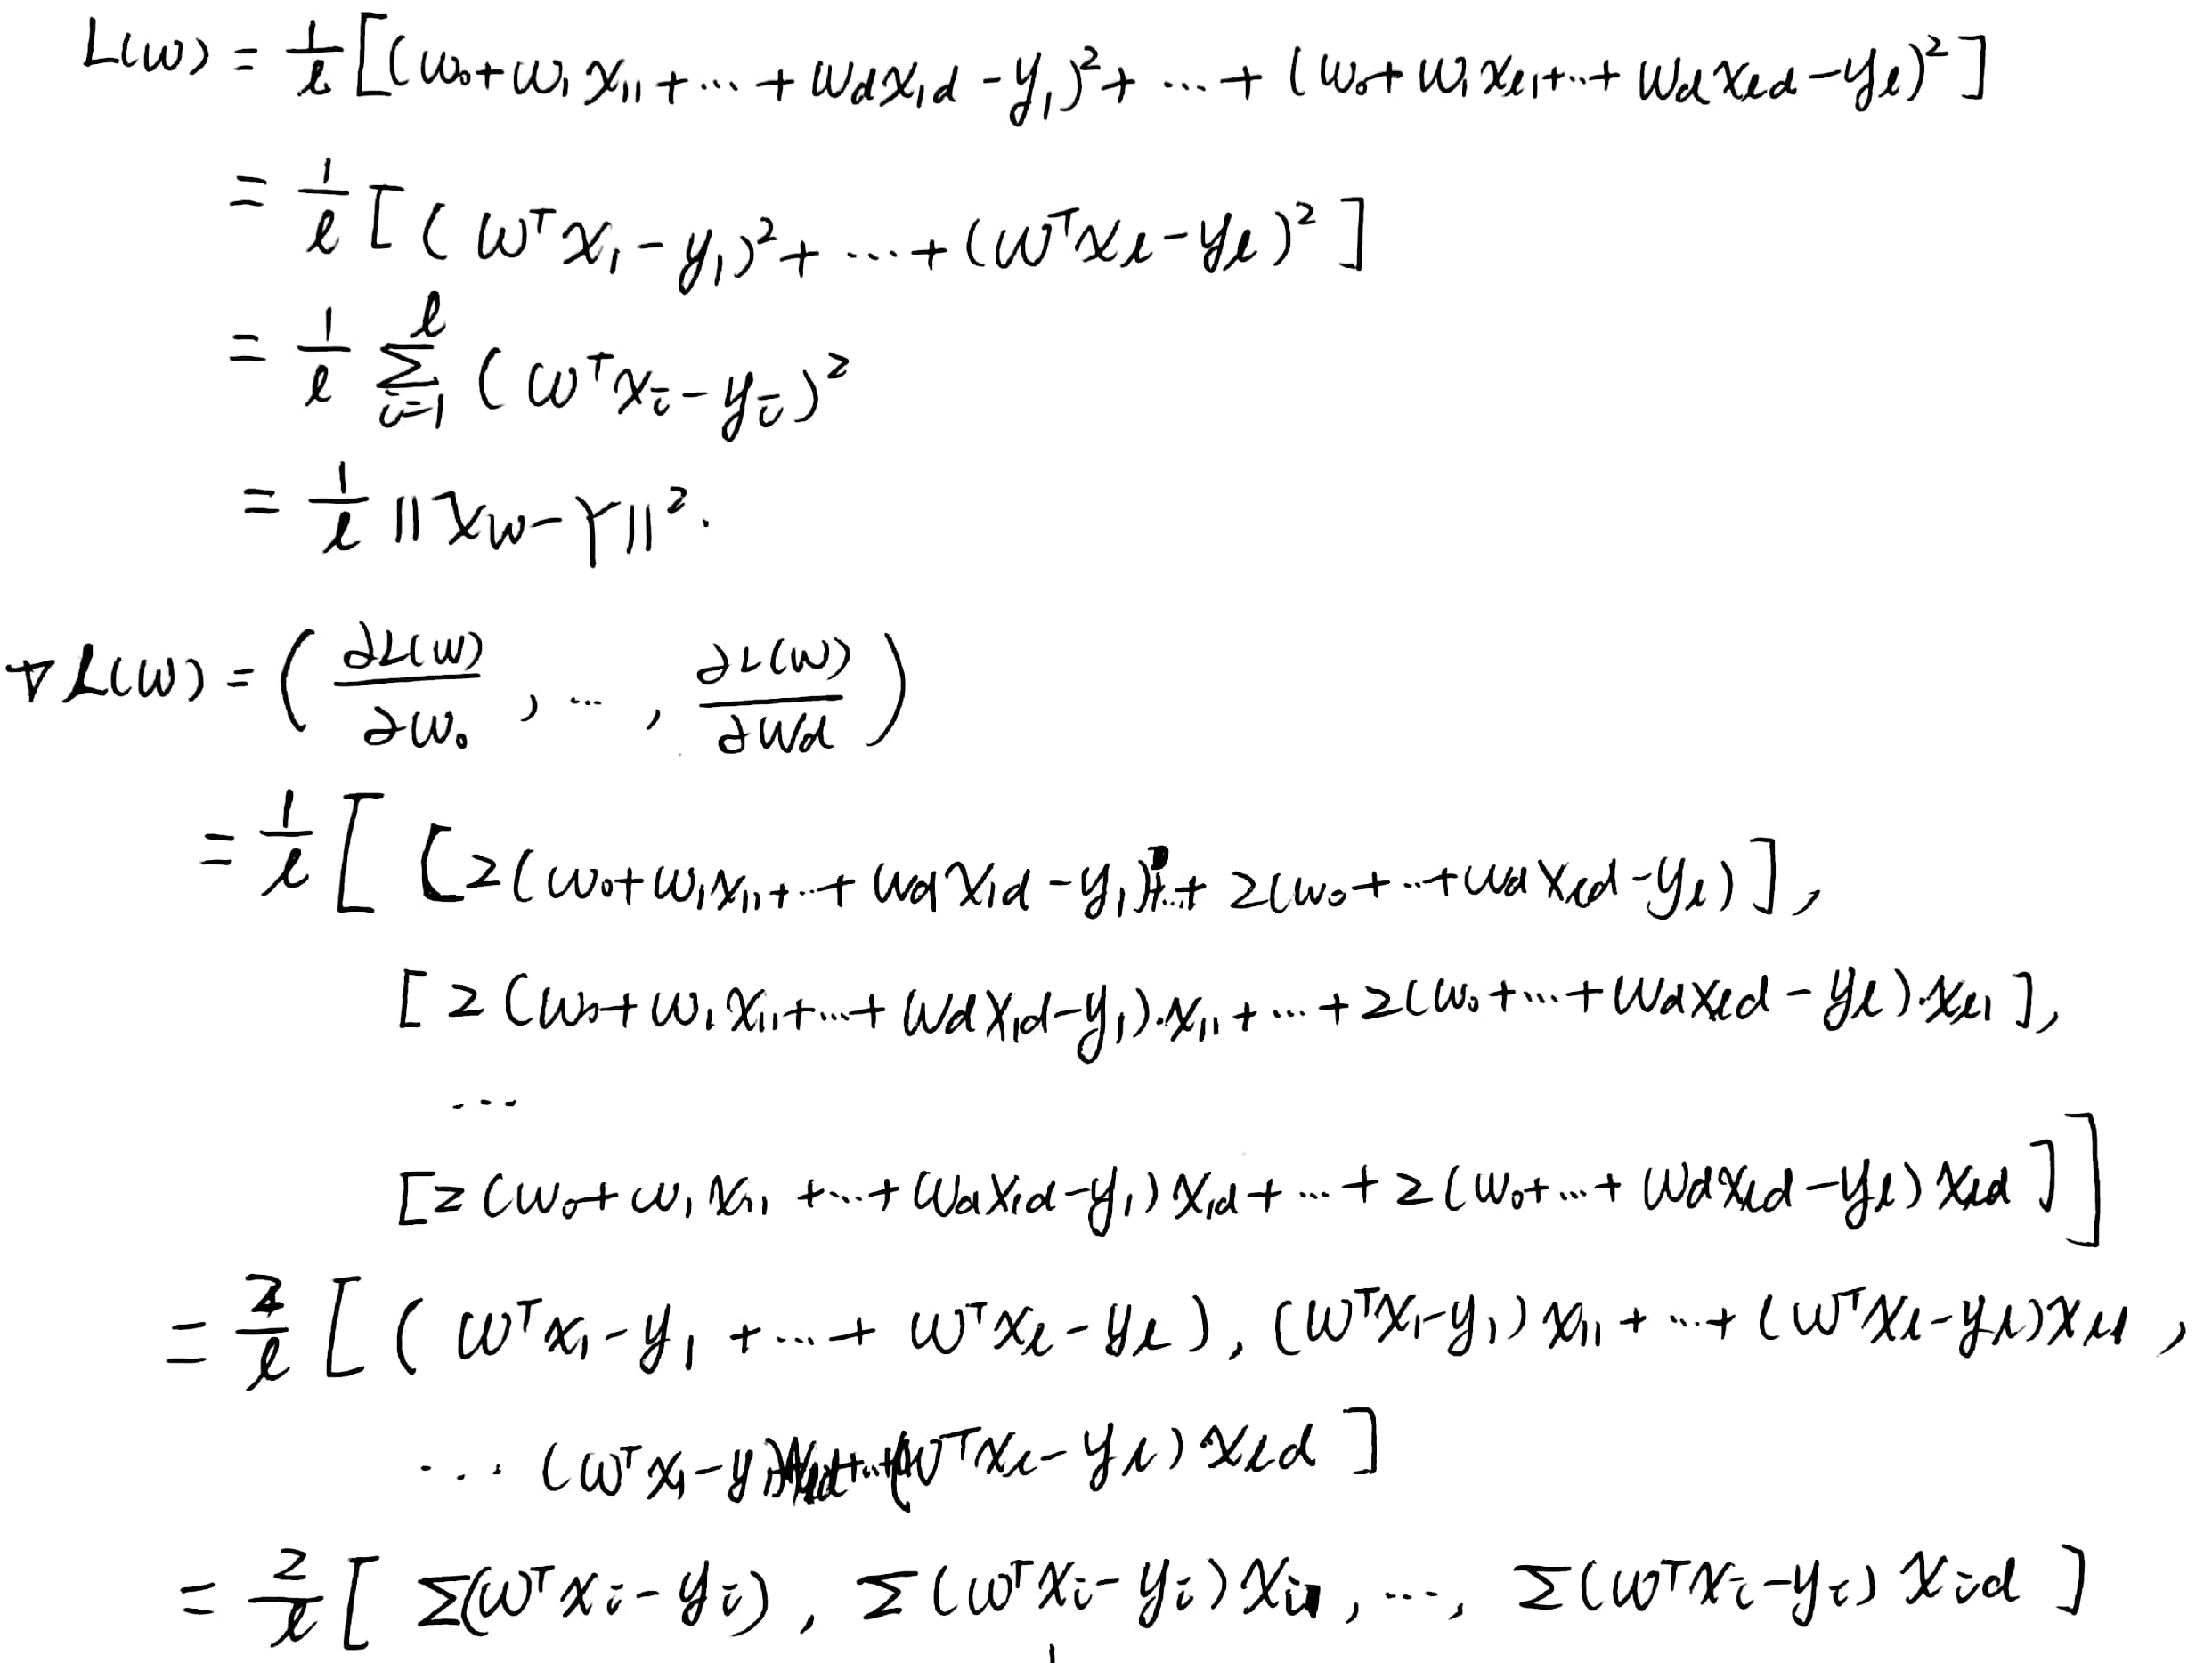 L(w) = 1/l [(w₀+w₁x₁₁+...+w_d x_1d −y₁)²+ ... + (w₀+w₁x_l1+..+w_d x_ld −y_l)²]
= 1/l [(w^T x₁−y₁)²+ ...+(w^T x_l−y_l)²]
= 1/l Σ_{i=1}^{l} (w^T x_i−y_i)²
= 1/l ||Xw−Y||².
∇L(w) = (∂L(w)/∂w₀ , ... , ∂L(w)/∂w_d)
= 1/l [ [2(w₀+w₁x₁₁+..+w_d x_1d −y₁)+..+ 2(w₀+..+w_d x_ld −y_l)],
[2(w₀+w₁x₁₁+...+w_d x_1d−y₁)·x₁₁+ ... +2(w₀+...+w_d x_ld −y_l)·x_l1],
...
[2(w₀+w₁x₁₁ +...+w_d x_1d−y₁)x_1d+ ... +2(w₀+...+w_d x_ld−y_l)x_ld]]
= 2/l [(w^T x₁−y₁ +...+ w^T x_l−y_l), (w^T x₁−y₁)x₁₁+ ...+(w^T x_l−y_l)x_l1,
... (w^T x₁−y₁)x_1d+..+(w^T x_l−y_l)x_ld]
= 2/l [Σ(w^T x_i−y_i), Σ(w^T x_i−y_i)x_i1, ..., Σ(w^T x_i−y_i)x_id]